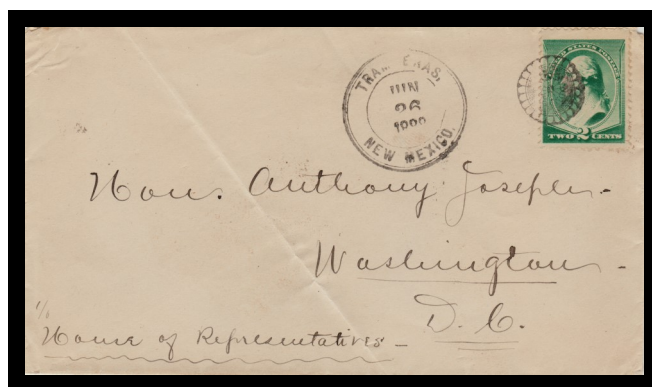 JUN
26
NEW MEXICO.
UNITED STATES POSTAGE
TWO 2 CENTS
Hon. Anthony Joseph -
Washington -
D. C.
c/o
House of Representatives -